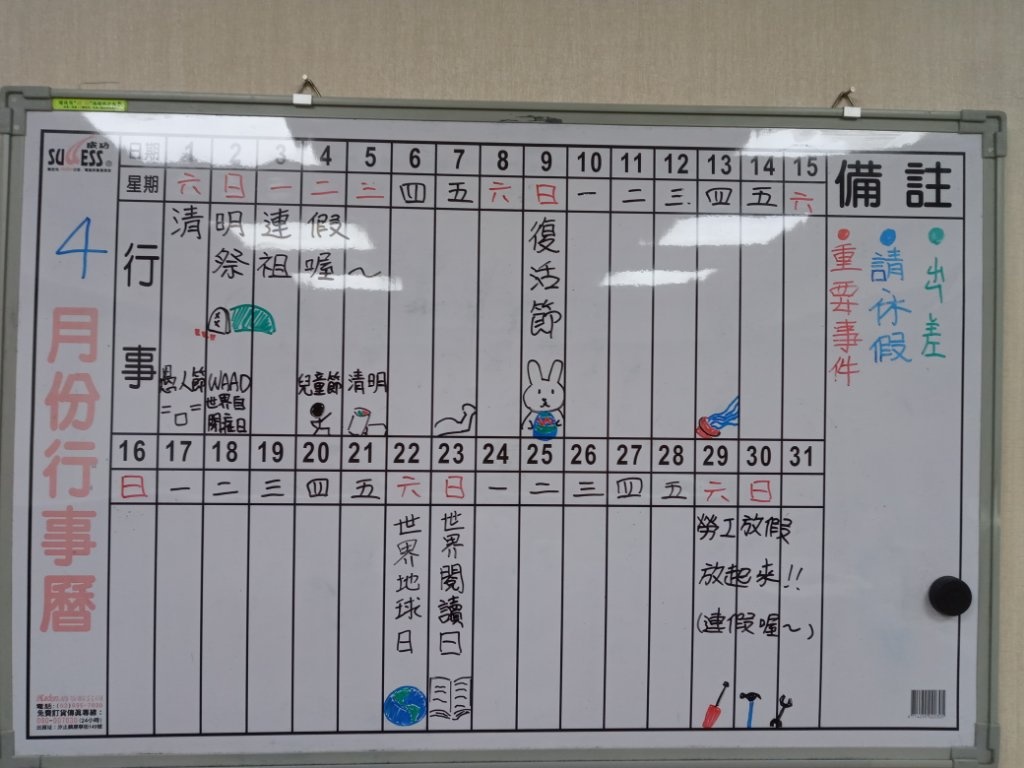 成功
SUCCESS
4
月份行事曆
日期 1 2 3 4 5 6 7 8 9 10 11 12 13 14 15
星期 六 日 一 二 三 四 五 六 日 一 二 三 四 五 六
行事
清明連假
祭祖喔~
復活節
愚人節
WAAD
世界自閉症日
兒童節
清明
16 17 18 19 20 21 22 23 24 25 26 27 28 29 30 31
日 一 二 三 四 五 六 日 一 二 三 四 五 六 日
世界地球日
世界閱讀日
勞工放假
放起來!!
(連假喔~)
備註
重要事件
請休假
出差